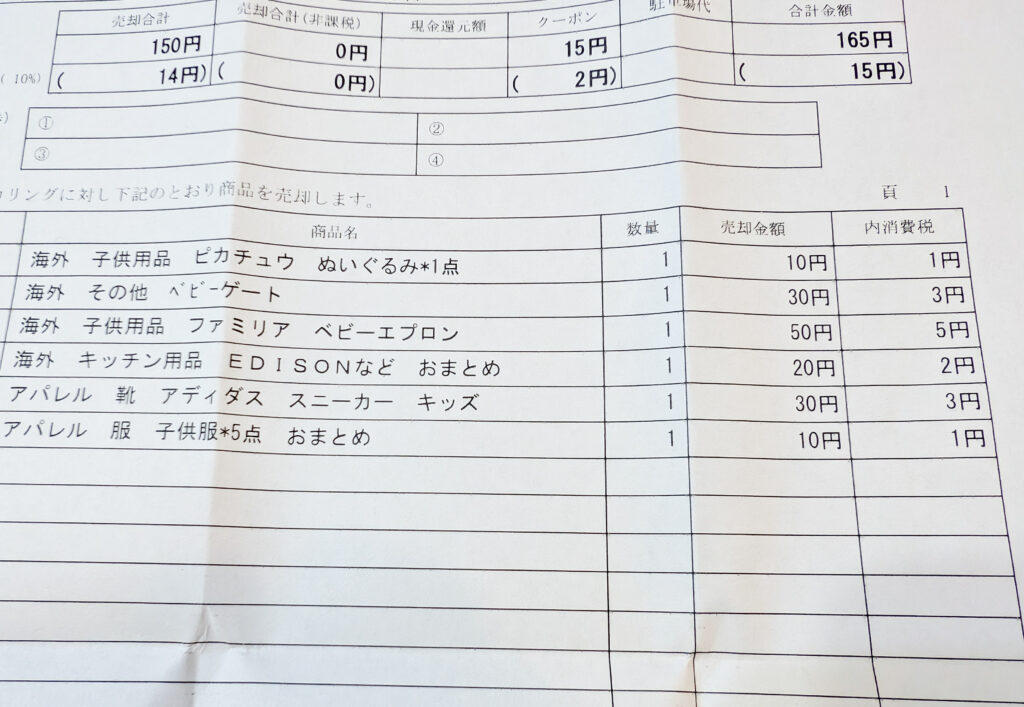 売却合計 売却合計(非課税) 現金還元額 クーポン 駐車場代 合計金額
150円 0円 15円 165円
( 10%) ( 14円) ( 0円) ( 2円) ( 15円)
① ②
③ ④
リングに対し下記のとおり商品を売却します。 頁 1
商品名 数量 売却金額 内消費税
海外 子供用品 ピカチュウ ぬいぐるみ*1点 1 10円 1円
海外 その他 ﾍﾞﾋﾞｰゲート 1 30円 3円
海外 子供用品 ファミリア ベビーエプロン 1 50円 5円
海外 キッチン用品 ＥＤＩＳＯＮなど おまとめ 1 20円 2円
アパレル 靴 アディダス スニーカー キッズ 1 30円 3円
アパレル 服 子供服*5点 おまとめ 1 10円 1円